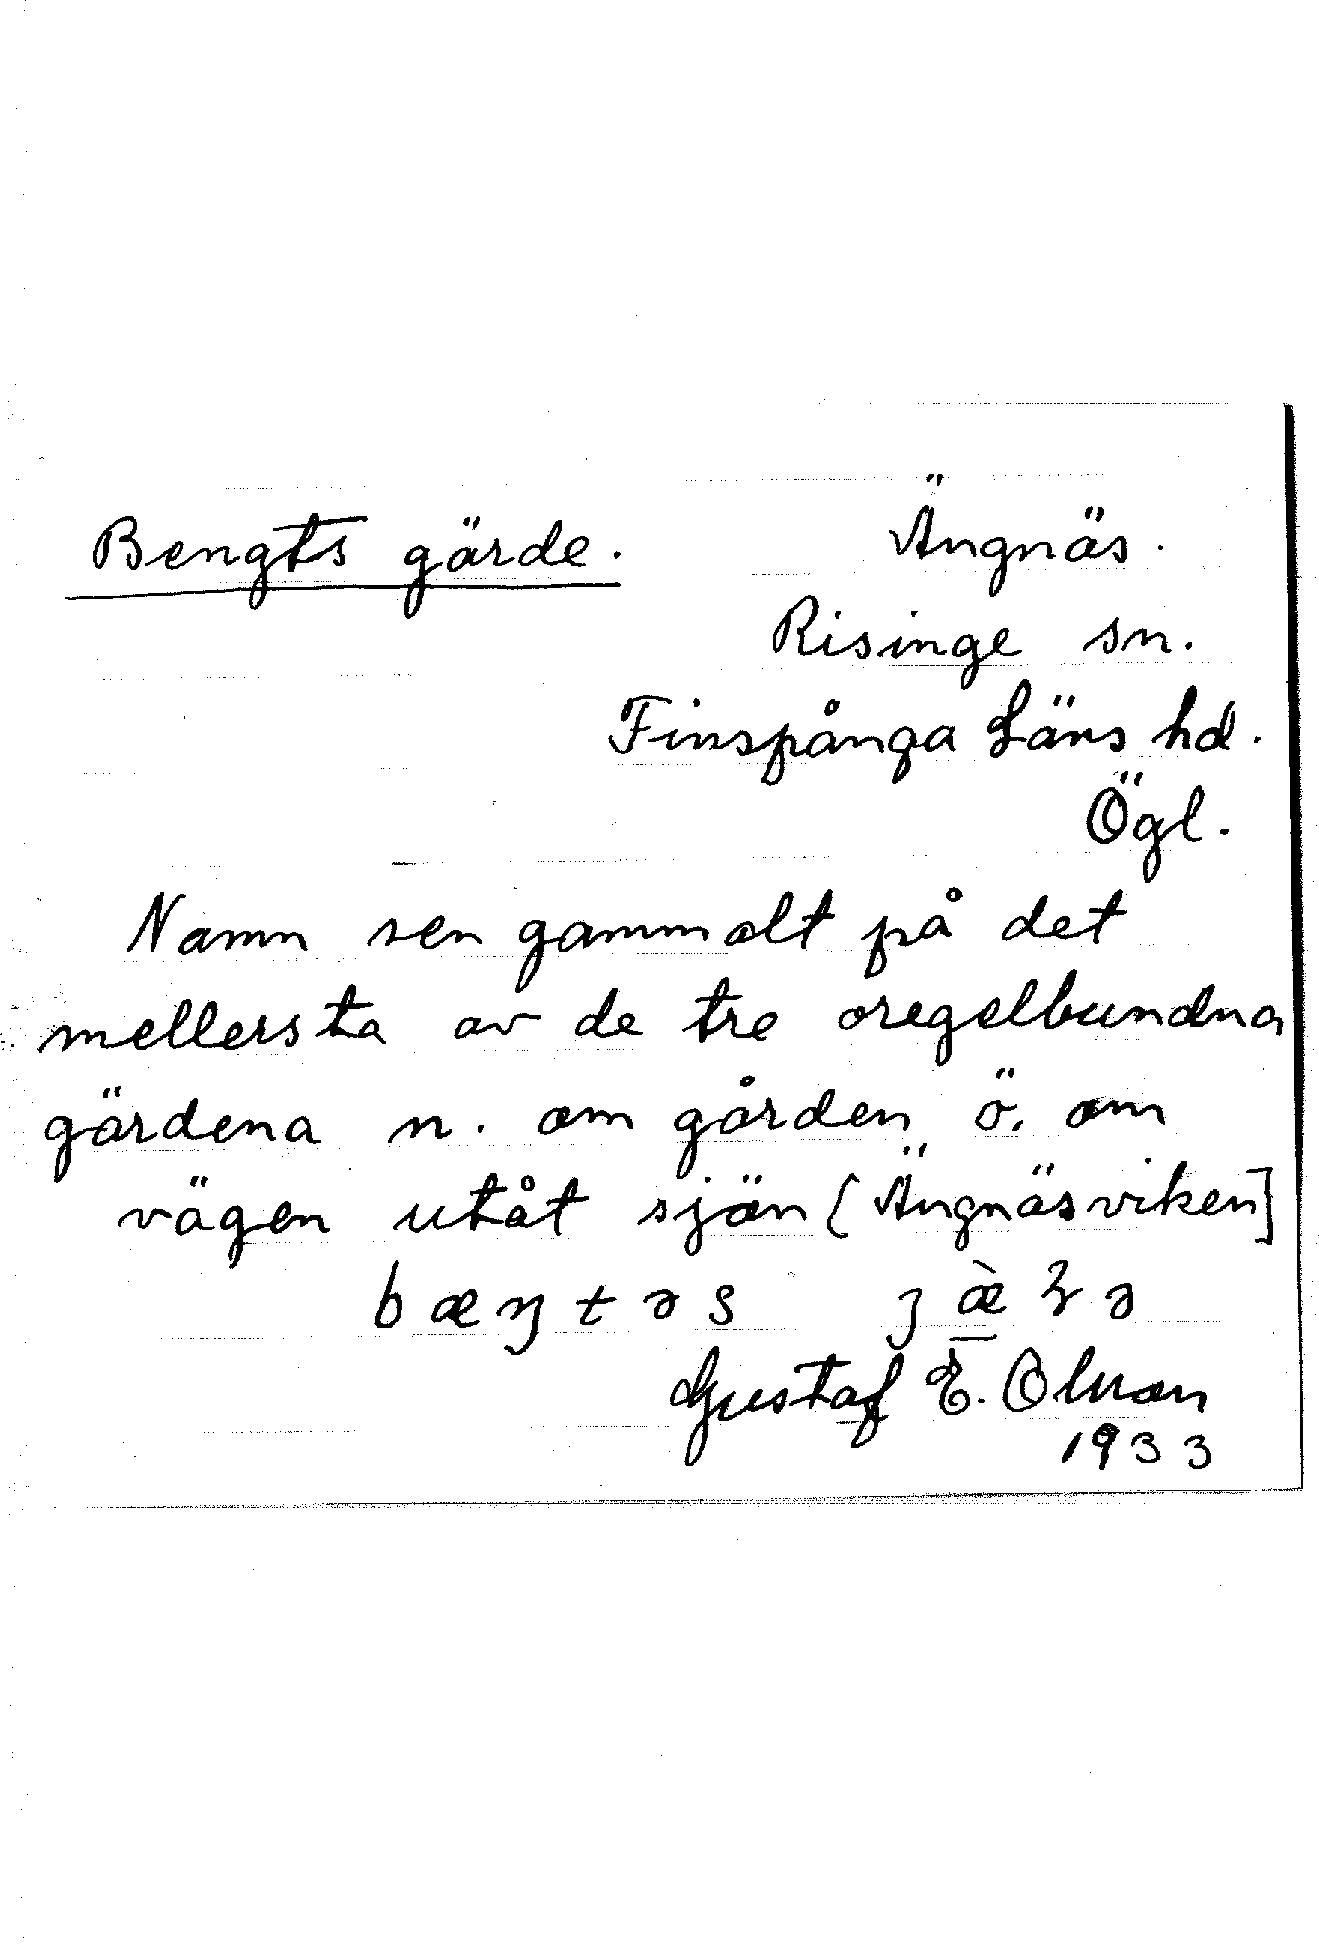 Bengts gärde. Ängnäs.
Risinge sn.
Finspånga Läns hd.
Ögl.
Namn sen gammalt på det
mellersta av de tre oregelbundna
gärdena n. om gården, ö. om
vägen utåt sjön [Ängnäsviken]
Gustaf E. Olman
1933